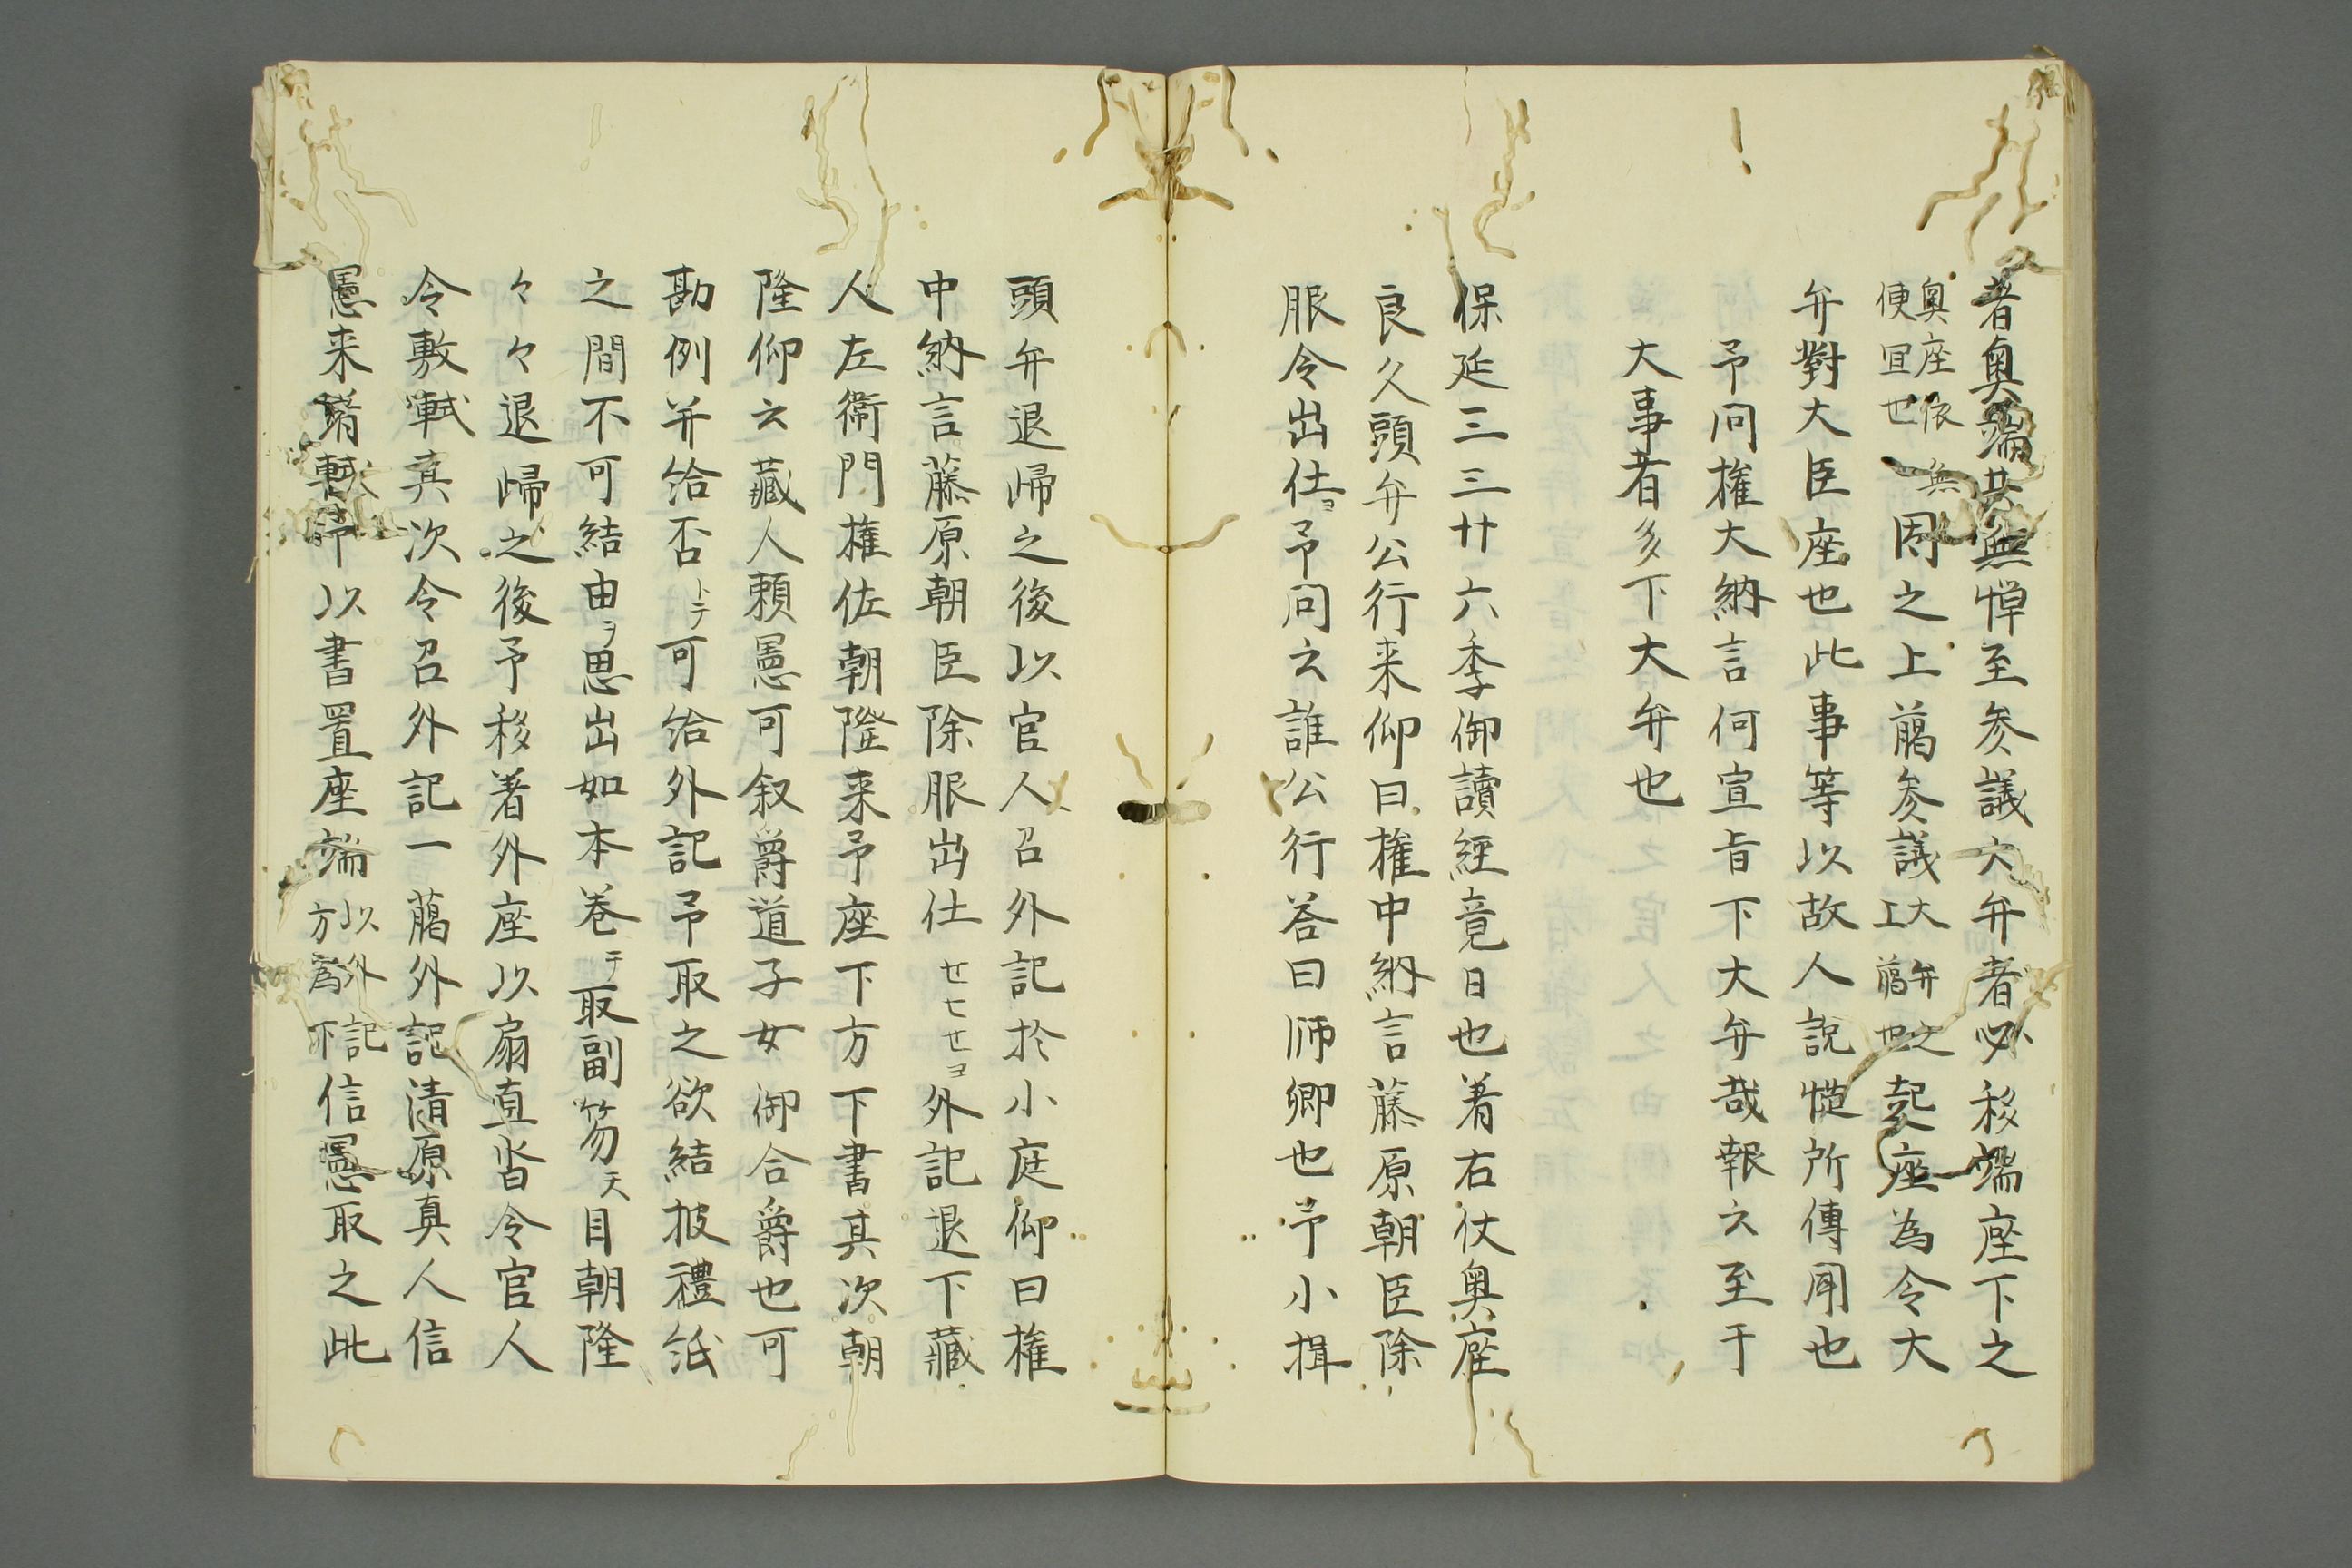 著奥端共無憚至参議大弁者必移端座下之
奥座依無便冝也因之上﨟参議大弁之上﨟也起座為令大
弁對大臣座也此事等以故人説慥所傳聞也
予問権大納言何宣旨下大弁哉報云至于
大事者多下大弁也
保延三三廿六季御讀經竟日也着右仗奥座
良久頭弁公行来仰曰権中納言藤原朝臣除
服令出仕ヨ予問云誰公行答曰师卿也予小揖
頭弁退歸之後以官人召外記於小庭仰曰権
中納言藤原朝臣除服出仕セヒセヨ外記退下蔵
人左衛門権佐朝隆来予座下方下書其次朝
隆仰云蔵人頼憲可叙爵道子女御合爵也可
勘例并给否トテ可给外記予取之欲結披禮紙
之間不可結由ヲ思出如本巻テ取副笏天目朝隆
々々退歸之後予移著外座以扇直沓令官人
令敷軾其次令召外記一﨟外記清原真人信
憲来著軾予以書置座端以外記方為下信憲取之此